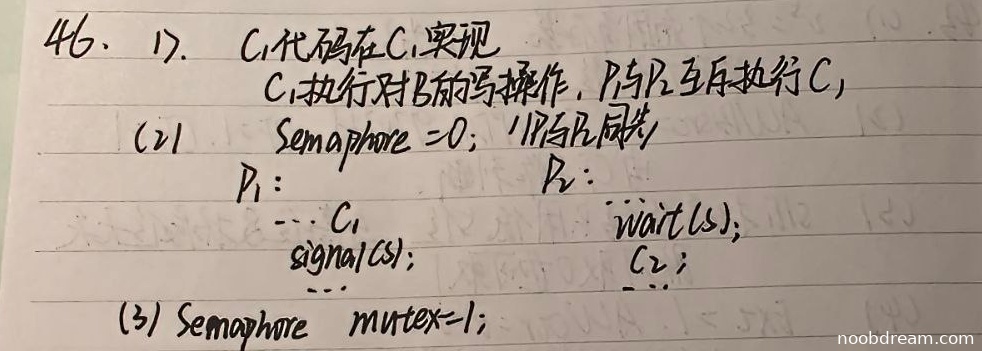 46. 1). C₁代码在C₁实现
C₁执行对B的写操作, P₁与P₂互斥执行C₁
(2) Semaphore =0; //P₁与P₂同步
P₁: P₂:
... C₁ ...
signal(s); wait(s);
... C₂;
...
(3) Semaphore mutex=1;
noobdream.com